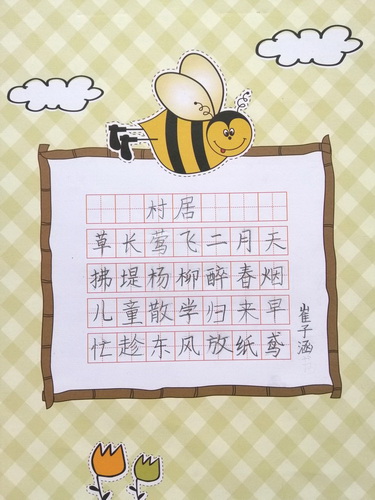 村居
草长莺飞二月天
拂堤杨柳醉春烟
儿童散学归来早
忙趁东风放纸鸢
崔子涵